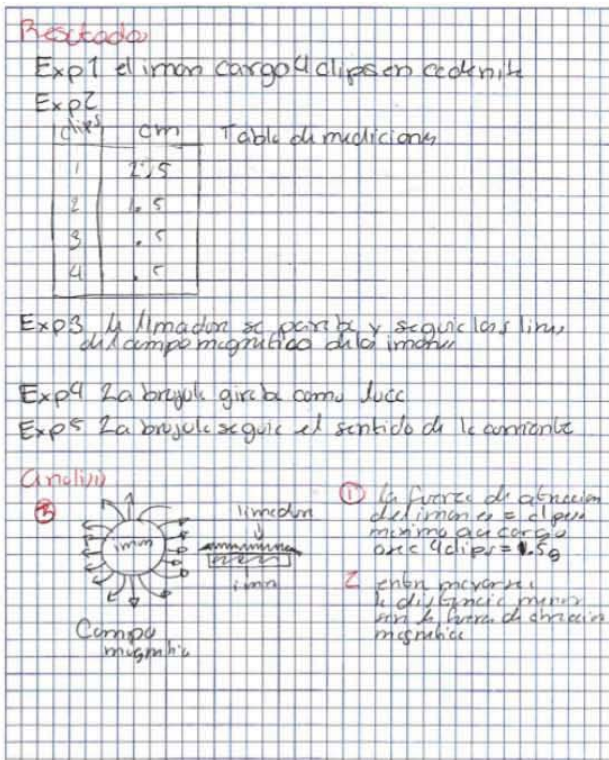 Resultado
Exp1 el iman cargo 4 clips en cadenita
Exp2
clips cm Tabla de mediciones
1 2.5
2 1.5
3 .5
4 .5
Exp3 la limadura se paraba y seguia las lineas
del campo magnetico de los imanes
Exp4 La brujula giraba como loca
Exp5 La brujula seguia el sentido de la corriente
Analisis
③
iman
limadura
iman
Campo
magnetico
① la fuerza de atraccion
del iman es = al peso
maximo que cargo
osea 4 clips = 1.5g
2 entre mayor sea
la distancia menor
sera la fuerza de atraccion
magnetica